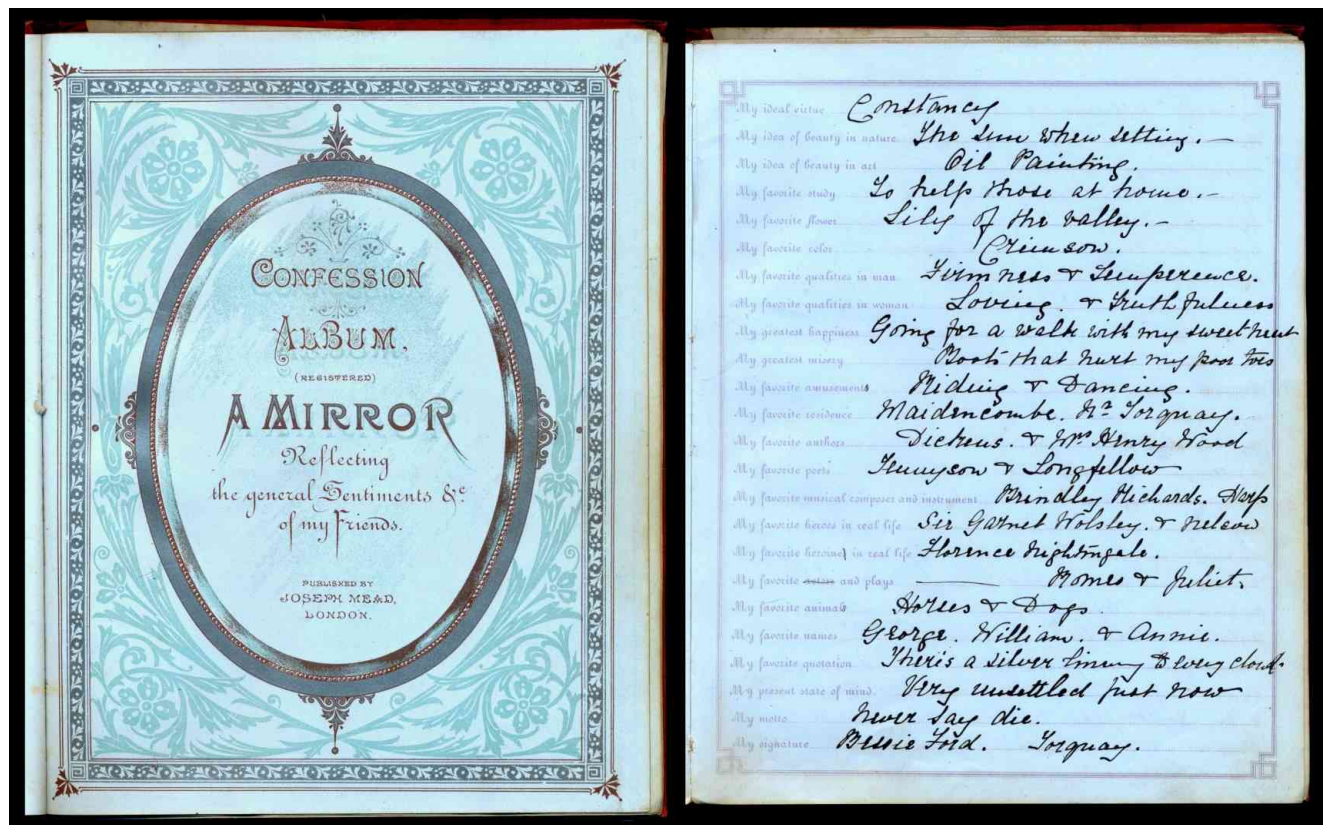 CONFESSION
ALBUM,
(REGISTERED)
A MIRROR
Reflecting
the general Sentiments &c
of my Friends.
PUBLISHED BY
JOSEPH MEAD,
LONDON.
My ideal virtue Constancy
My idea of beauty in nature The sun when setting.—
My idea of beauty in art Oil Painting.
My favorite study To help those at home.—
My favorite flower Lily of the valley.—
My favorite color Crimson.
My favorite qualities in man Firmness & Temperence.
My favorite qualities in woman Loving. & Truthfulness
My greatest happiness Going for a walk with my sweetheart
My greatest misery Boots that hurt my poor toes
My favorite amusements Riding & Dancing.
My favorite residence Maidencombe. Nr Torquay.
My favorite authors Dickens. & Mrs Henry Wood
My favorite poets Tennyson & Longfellow
My favorite musical composer and instrument Brindley Richards. Harp
My favorite heroes in real life Sir Garnet Wolsley. & Nelson
My favorite heroines in real life Florence Nightingale.
My favorite actors and plays —— Romeo & Juliet.
My favorite animals Horses & Dogs.
My favorite names George. William. & Annie.
My favorite quotation There's a silver lining to every cloud.
My present state of mind. Very unsettled just now
My motto Never say die.
My signature Bessie Ford. Torquay.